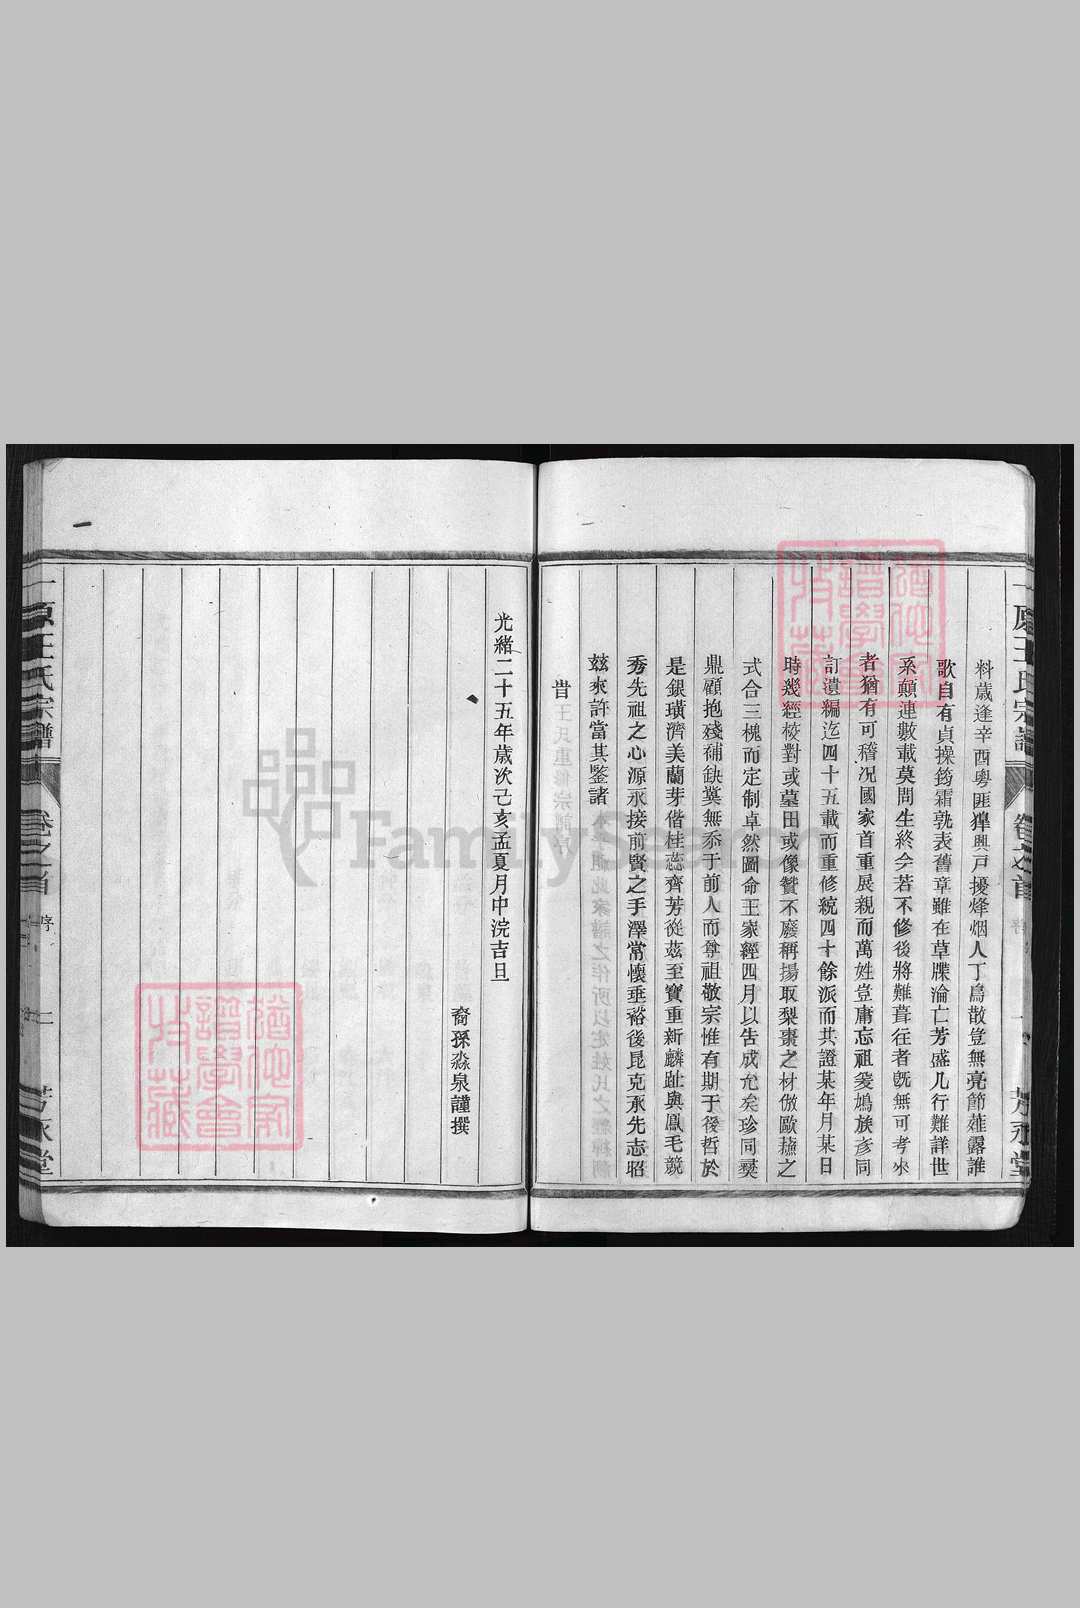 料歲逢辛酉粵匪猖興戸擾烽烟人丁鳥散豈無亮節薤露誰
歌自有貞操筠霜孰表舊章雖在草牒淪亡芳盛几行難詳世
系顛連數載莫問生終今若不修後將難葺往者既無可考來
者猶有可稽况國家首重展親而萬姓豈庸忘祖爰鳩族彥同
訂遺編迄四十五載而重修統四十餘派而共證某年月某日
時幾經校對或墓田或像贊不廢稱揚取梨棗之材倣歐蘇之
式合三槐而定制卓然圖命王家經四月以告成允矣珍同彞
鼎顧抱殘補缺冀無忝于前人而尊祖敬宗惟有期于後哲於
是銀璜濟美蘭芽偕桂蕊齊芳從茲至寶重新麟趾與鳳毛競
秀先祖之心源永接前賢之手澤常懷垂裕後昆克承先志昭
茲來許當其鑒諸
旹
光緒二十五年歲次己亥孟夏月中浣吉旦
裔孫淼泉謹撰
王氏宗譜
卷之首
序
二
芳永堂